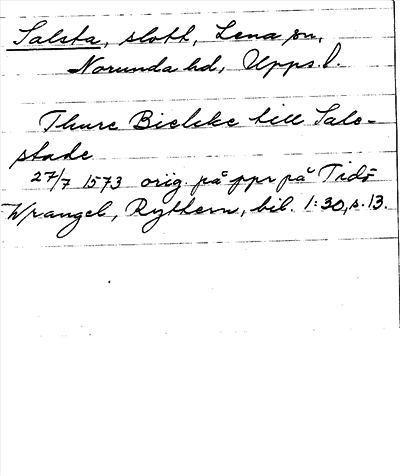 Salsta, slott, Lena sn,
Norunda hd, Upps. l.
Thure Bielke till Sals-
stade
27/7 1573 orig. på ppr på Tidö
Wrangel, Ryttern, bil. 1:30, s. 13.